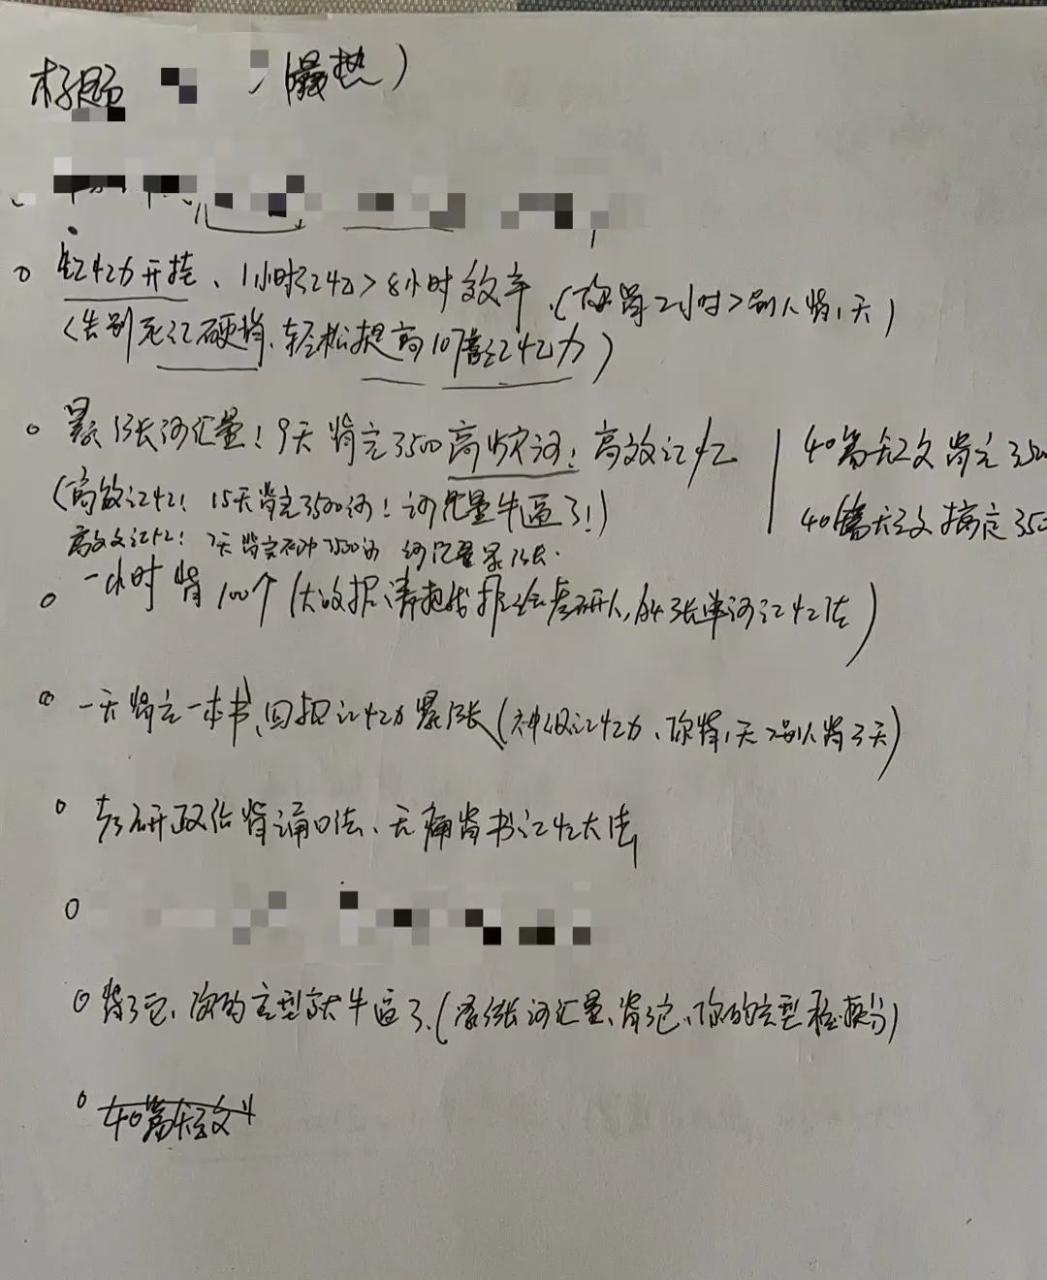 标题 (最热)
记忆力开挂、1小时记忆>8小时效率、(你背2小时>别人背1天)
(告别死记硬背、轻松提高10倍记忆力)
暴涨词汇量!9天背完3500高频词!高效记忆
(高效记忆!15天背完3500词!词汇量牛逼了!)
高效记忆!7天背完 3500词 词汇量暴涨.
40篇短文背完350
40篇短文搞定350
一小时背100个(大数据请把我推给考研人,夸张单词记忆法)
一天背完一本书、回报记忆力暴涨(神级记忆力、你背1天>别人背3天)
考研政治背诵口诀、无痛背书记忆大法
背完它、你的完型就牛逼了、(暴涨词汇量、背完它、你的完型稳提分)
40篇短文